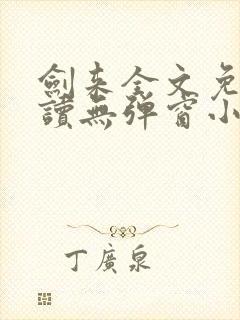 劍來全文免
讀無彈窗小
丁廣泉